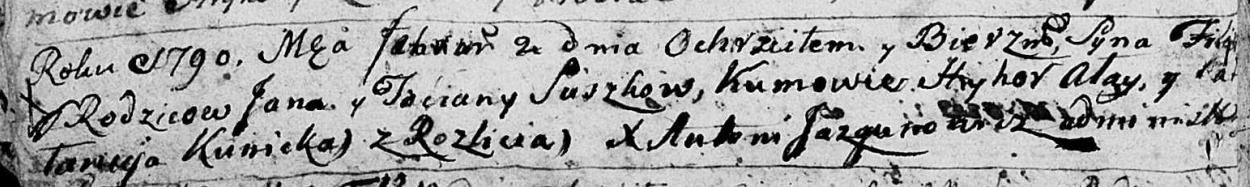 mowie
Roku 1790. Męa Febrar 2 dnia Ochrzciłem. y Bierzmo, Syna Filip
Rodzicow Jana. y Taciany Suszkow, Kumowie Hryhor Ałay, y Ka
taryja Kunicka) z Rozlicia) X Antoni Jazgunowicz administ